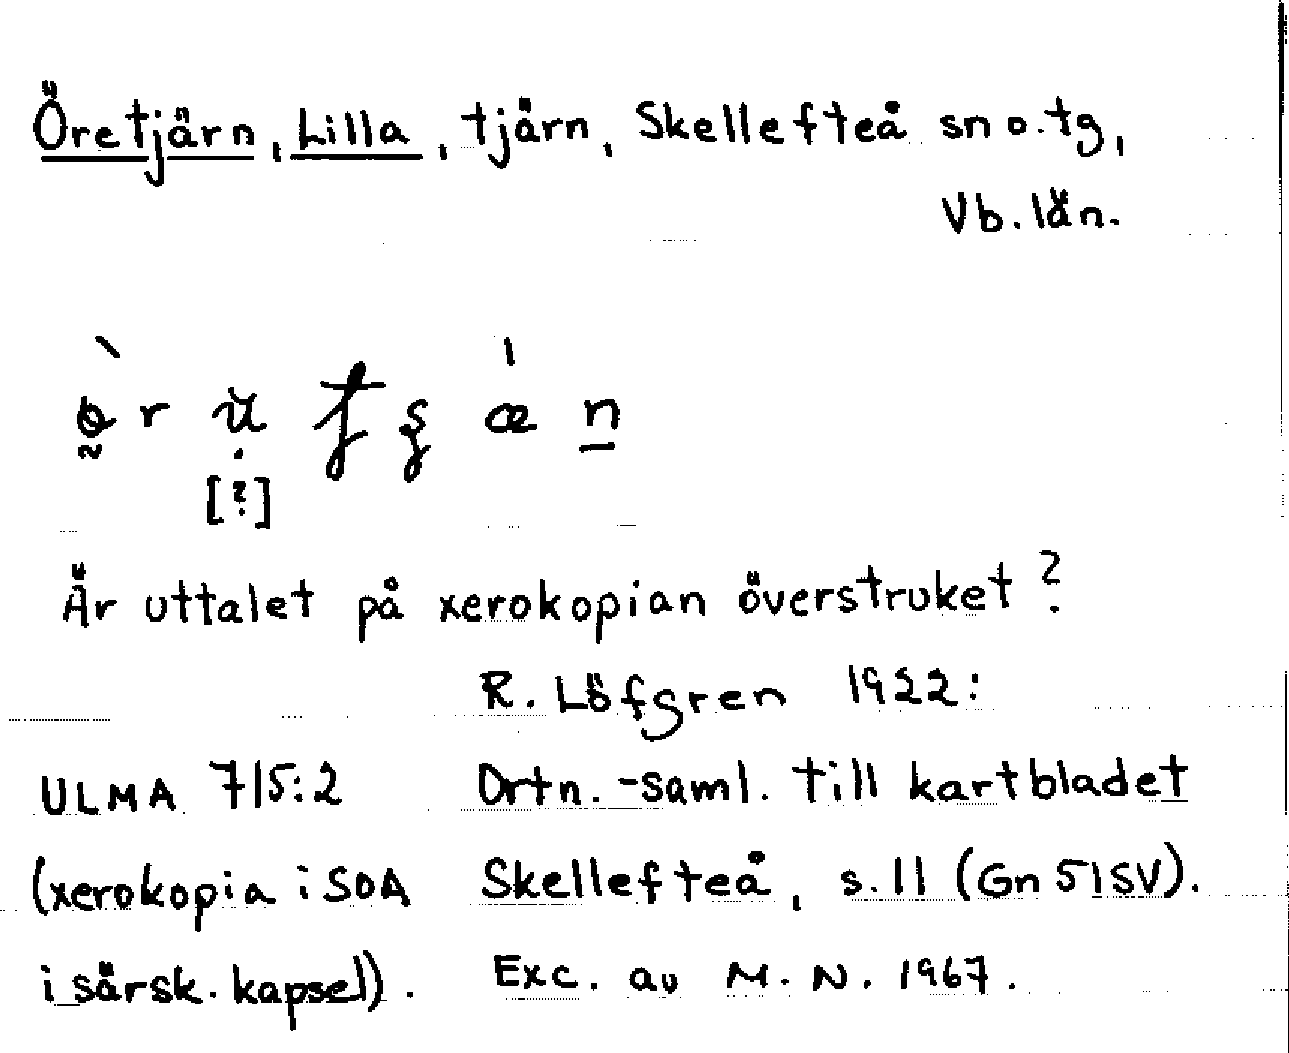 Öretjärn, Lilla, tjärn, Skellefteå sn o. tg,
Vb. län.
[?]
Är uttalet på xerokopian överstruket?
R. Löfgren 1922:
ULMA 715:2 Ortn.-saml. till kartbladet
(xerokopia i SOA Skellefteå, s. 11 (Gn 51SV).
i särsk. kapsel). Exc. av M. N. 1967.